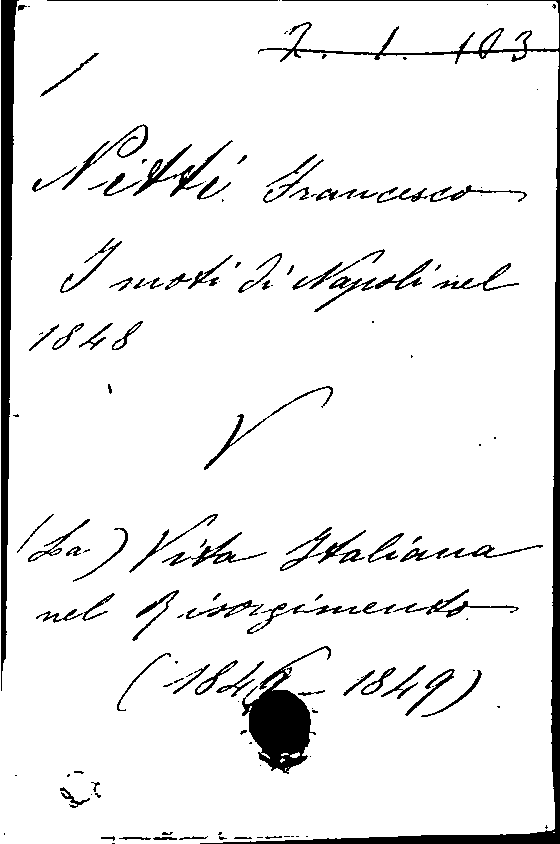 2. 1. 103
Nitti Francesco
I moti di Napoli nel
1848
V
(La) Vita Italiana
nel Risorgimento
(1846 - 1849)